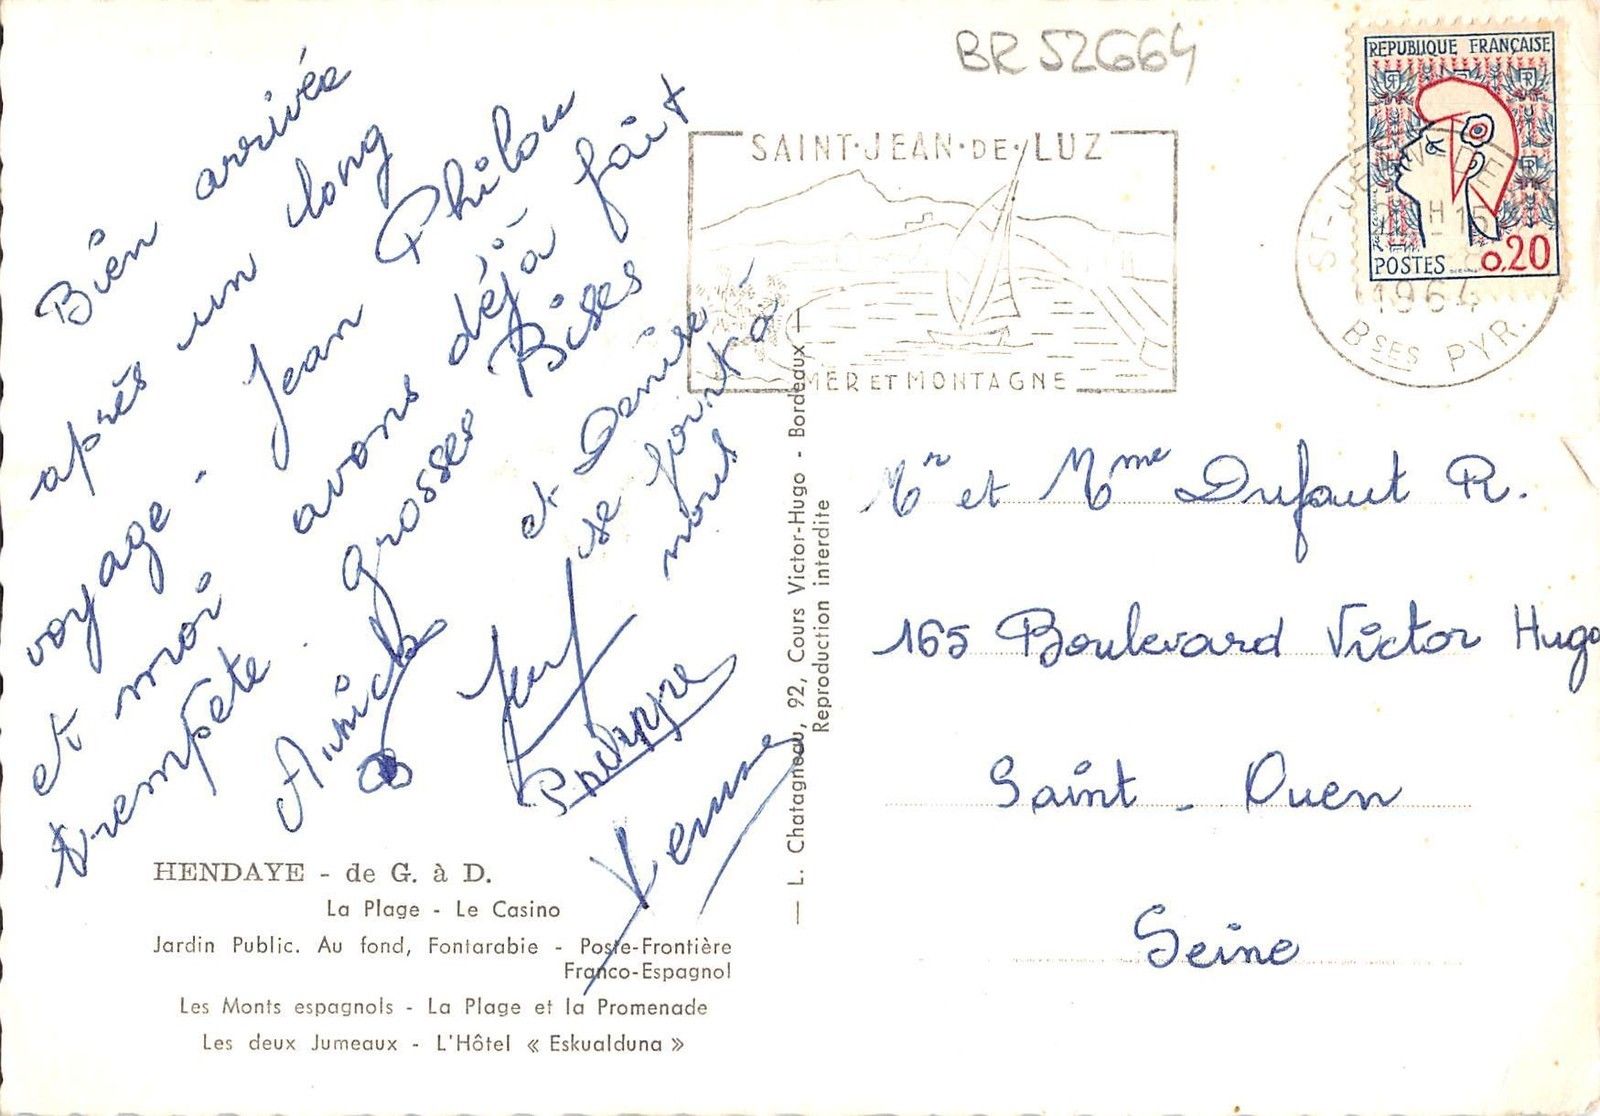 Bien arrivée
après un long
voyage - Jean Philou
et moi avons déjà fait
trempète. grosses Bises
Annick
et Denise
se joint à
nous
Philippe
BR 52664
SAINT·JEAN·DE·LUZ
MER ET MONTAGNE
REPUBLIQUE FRANÇAISE
POSTES 0,20
ST-JEAN-DE
H 15
1964
BSES PYR.
Mr et Mme Dufaut R.
165 Boulevard Victor Hugo
Saint - Ouen
Seine
HENDAYE - de G. à D.
La Plage - Le Casino
Jardin Public. Au fond, Fontarabie - Poste-Frontière
Franco-Espagnol
Les Monts espagnols - La Plage et la Promenade
Les deux Jumeaux - L'Hôtel « Eskualduna »
— L. Chatagneau, 92, Cours Victor-Hugo - Bordeaux —
Reproduction interdite